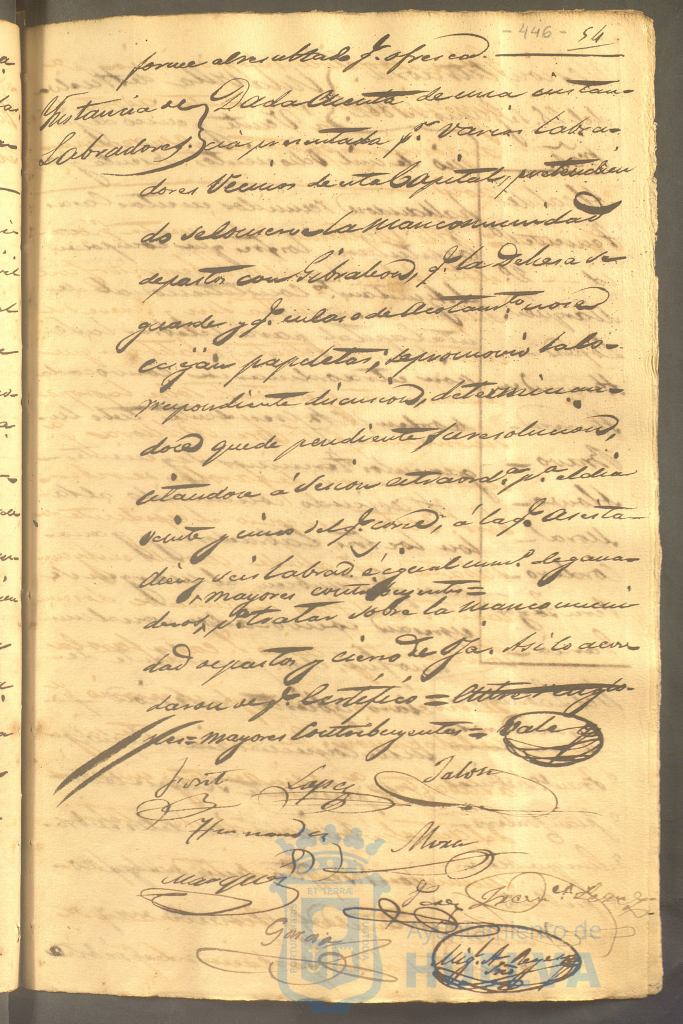 - 446 - 54
forme al resultado q.e ofresca.
Instancia de
Labradores.
Dada Cuenta de una instan-
cia presentada p.r varios labra-
dores Vecinos de esta Capital, pretendien
do se
la mancomunidad
de pastos con Gibraleon, q.e la Dehesa se
guarde y q.e en caso de Acotam.to no se
exijan papeletas; se promovió la co-
rrespondiente discusion, determinan-
dose quede pendiente su resolucion,
citandose á Sesion extraord.a p.a el dia
veinte y cinco del q.e corre, á la q.e asista-
diez y seis Labrad.s é igual num.o de gana-
mayores contribuyentes=
deros, p.a tratar sobre la mancomuni
dad de pastos y cierro de
Asi lo acor
daron de q.e Certifico = Entre renglo-
nes = mayores Contribuyentes = Vale
Lopez
Hernandez
Mora
Marquez
Garcia
ET TERRÆ
Ayuntamiento de
HUELVA